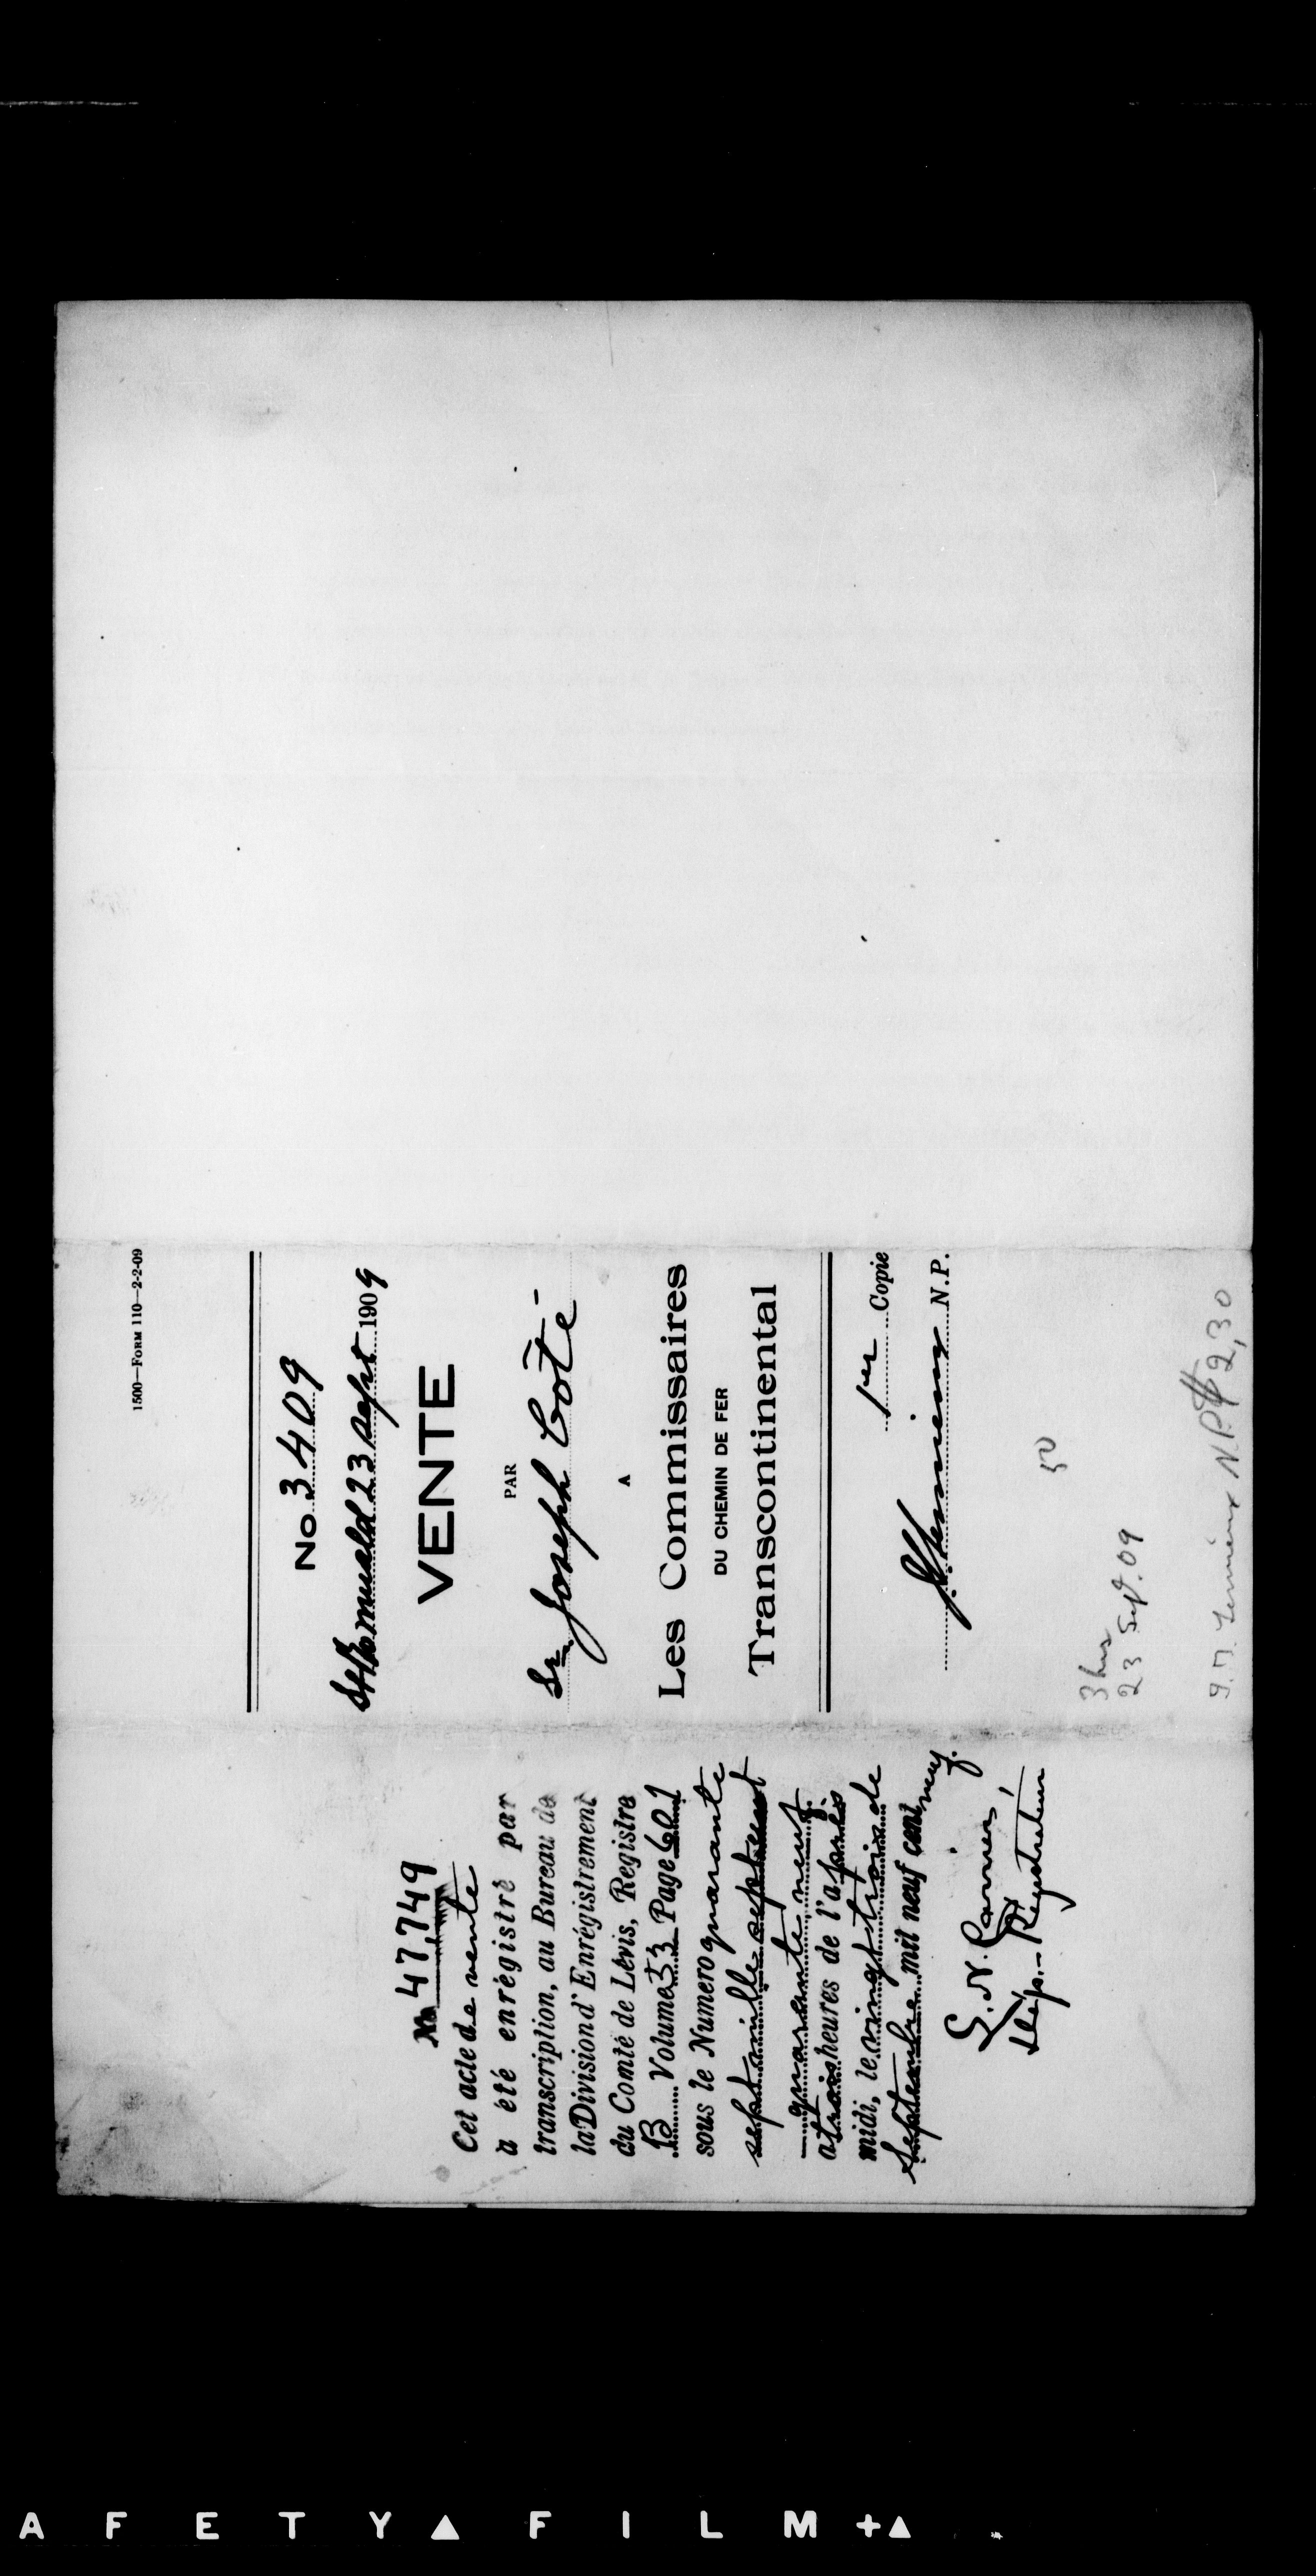 1500—FORM 110—2-2-09
No. 3409
St Romuald 23 sept 1909
VENTE
PAR
Sr Joseph Coté -
A
Les Commissaires
DU CHEMIN DE FER
Transcontinental
1er Copie
N.P.
50
3 hrs
23 Sept. 09
Lemieux N.P. $2,30
No 47,749
Cet acte de vente
a été enrégistré par
transcription, au Bureau de
la Division d'Enrégistrement
du Comté de Lévis, Registre
B Volume 53 Page 601
sous le Numero quarante
sept mille sept cent
quarante neuf.
a trois heures de l'après
midi, le vingt trois de
Septembre mil neuf cent neuf.
Dép.- Registrateur
AFETY▲FILM+▲